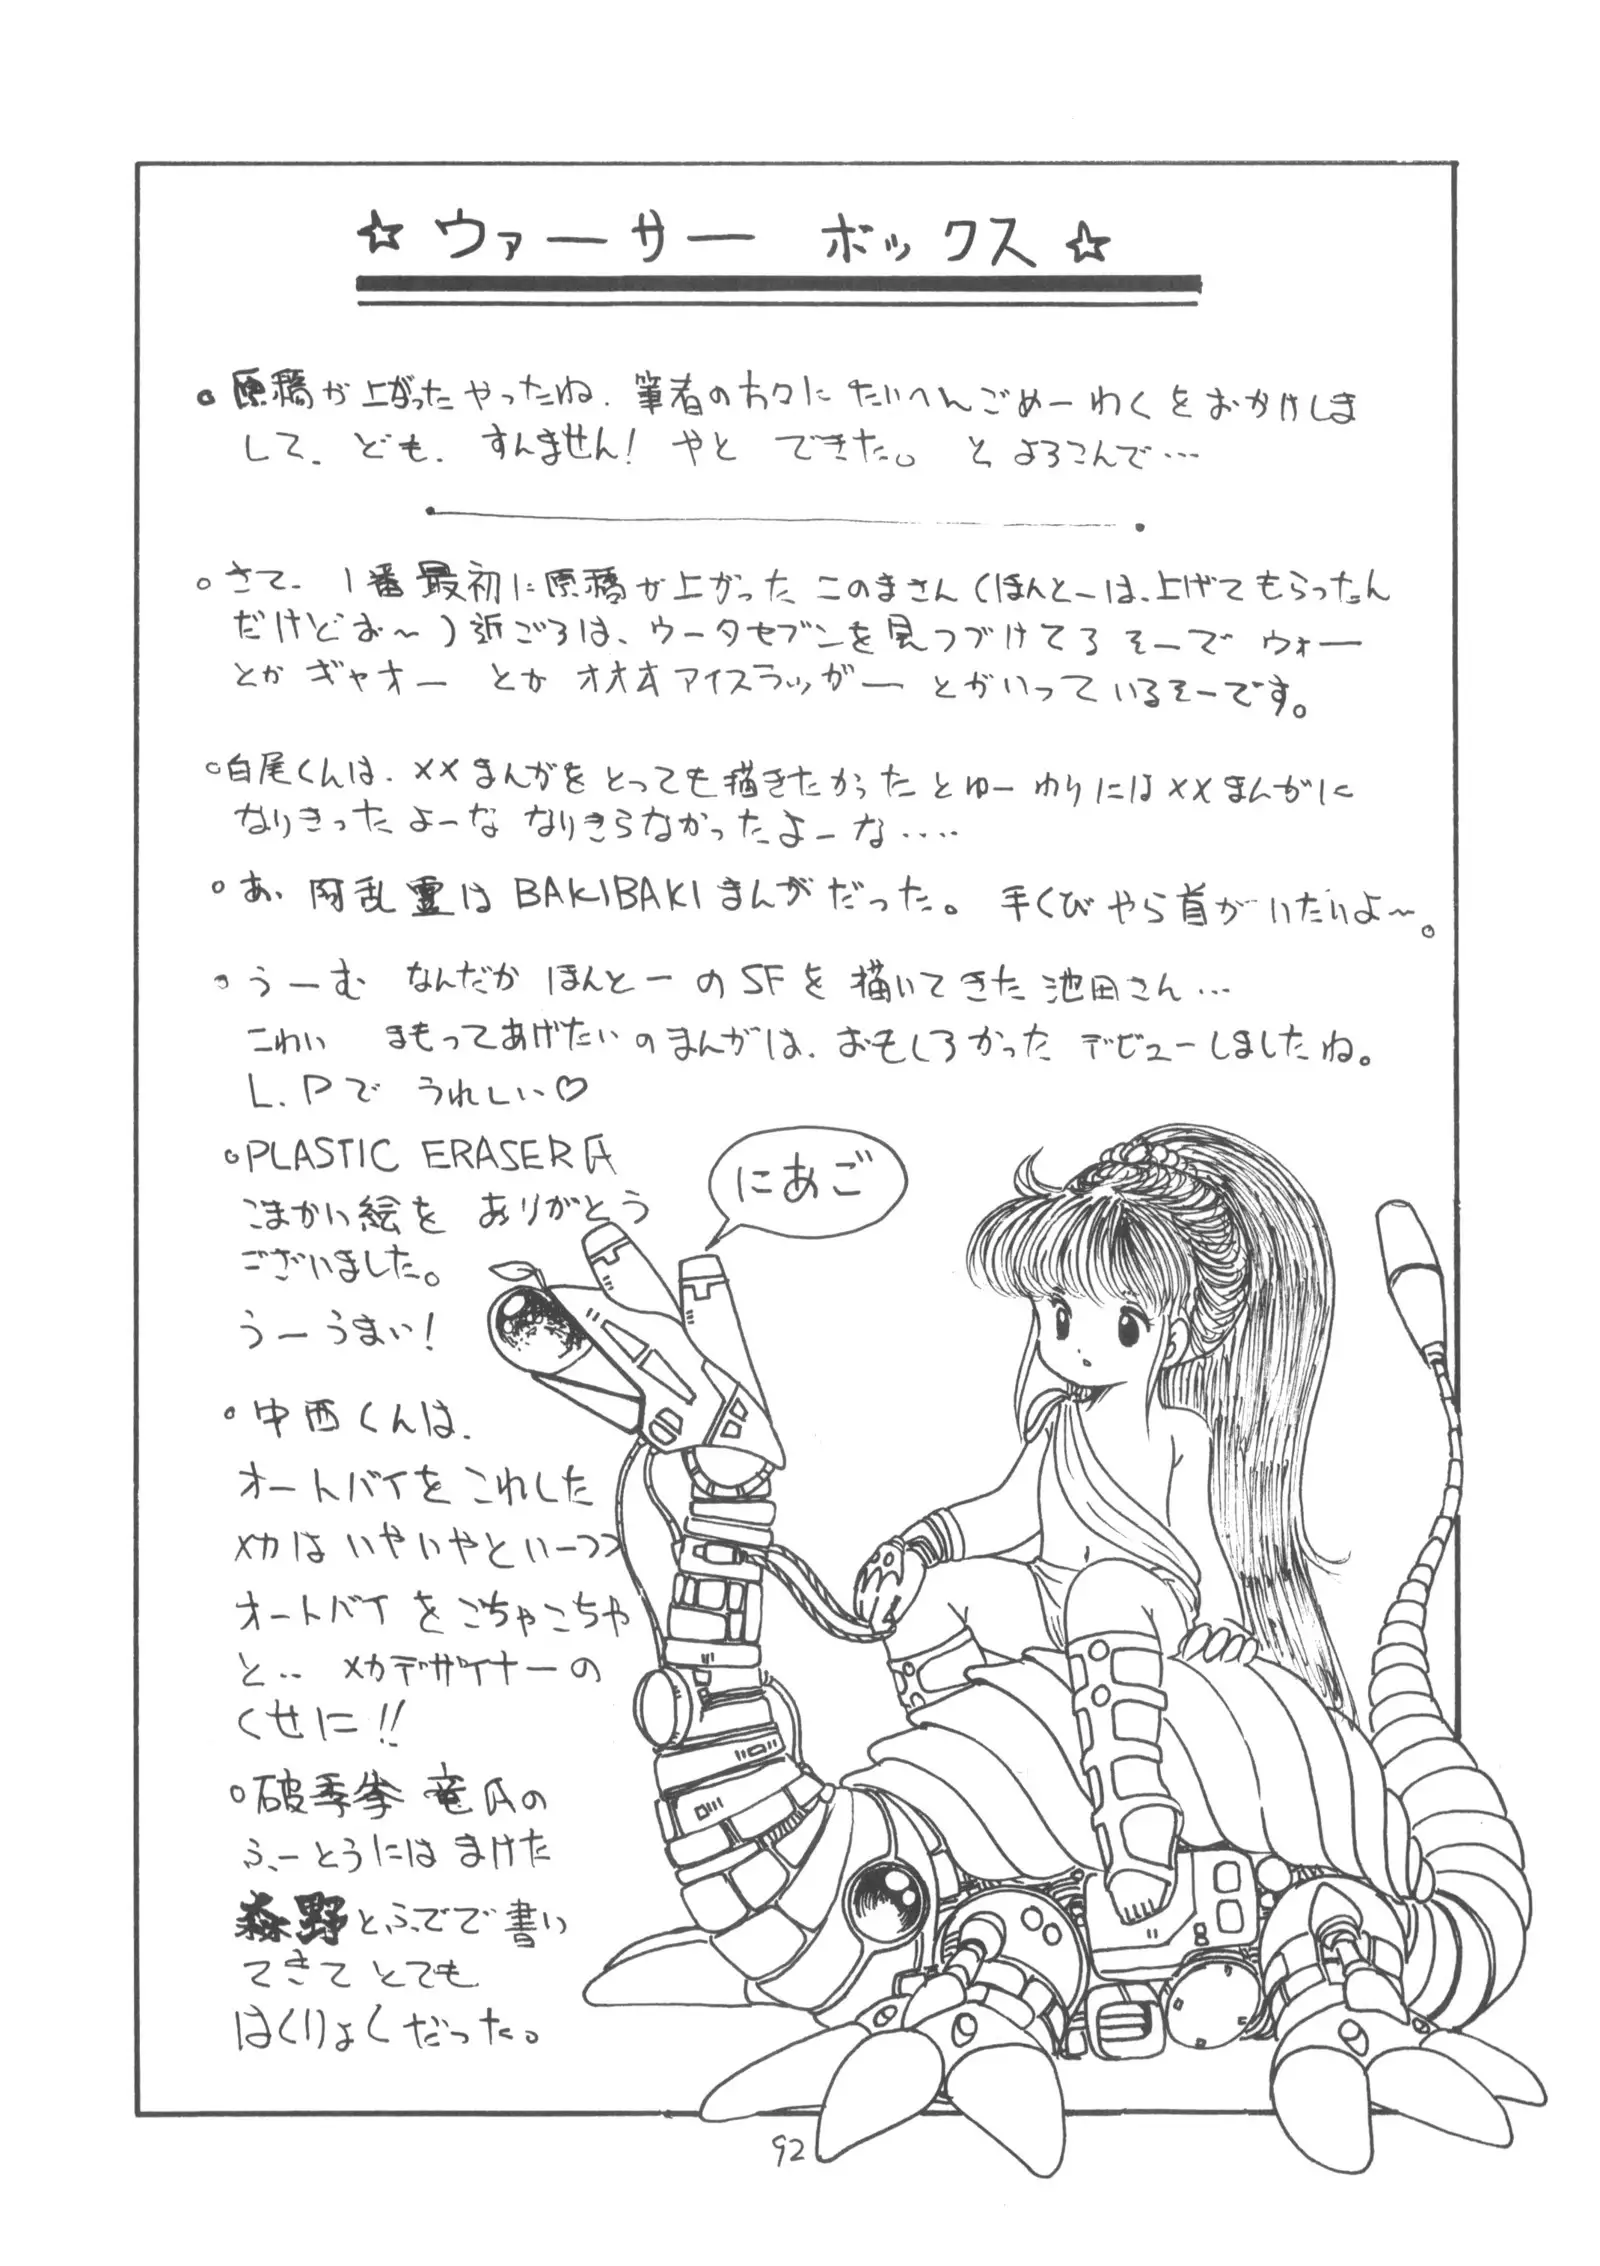 ☆ ウァーサー ボックス ☆
。原稿が上がったやったね. 筆者の方々に たいへんごめーわくをおかけしま
して. ども. すんません! やと できた。 と よろこんで…
。さて. 1番最初に原稿が上がった このまさん(ほんとーは、上げてもらったん
だけどぉ〜)近ごろは、ウータセブンを見つづけてる そーで ウォー
とか ギャオー とか オオオアイスラッガー とかいっているそーです。
。白尾くんは. ××まんがをとっても描きたかったとゆーわりには××まんがに
なりきったよーな なりきらなかったよーな‥‥
。あ、阿乱霊は BAKIBAKIまんがだった。 手くびやら首がいたいよ〜。
。うーむ なんだか ほんとーのSFを描いてきた池田さん…
こわい まもってあげたいのまんがは. おもしろかった デビューしましたね。
L.Pで うれしい♡
。PLASTIC ERASER氏
こまかい絵を ありがとう
ございました。
うーうまい!
にあご
。中西くんは.
オートバイをこれした
メカは いやいやといーつつ
オートバイをごちゃこちゃ
と‥ メカデザイナーの
くせに!!
。破季拳 竜氏の
ふーとうには まけた
森野とふでで書い
てきて とても
はくりょくだった。
92